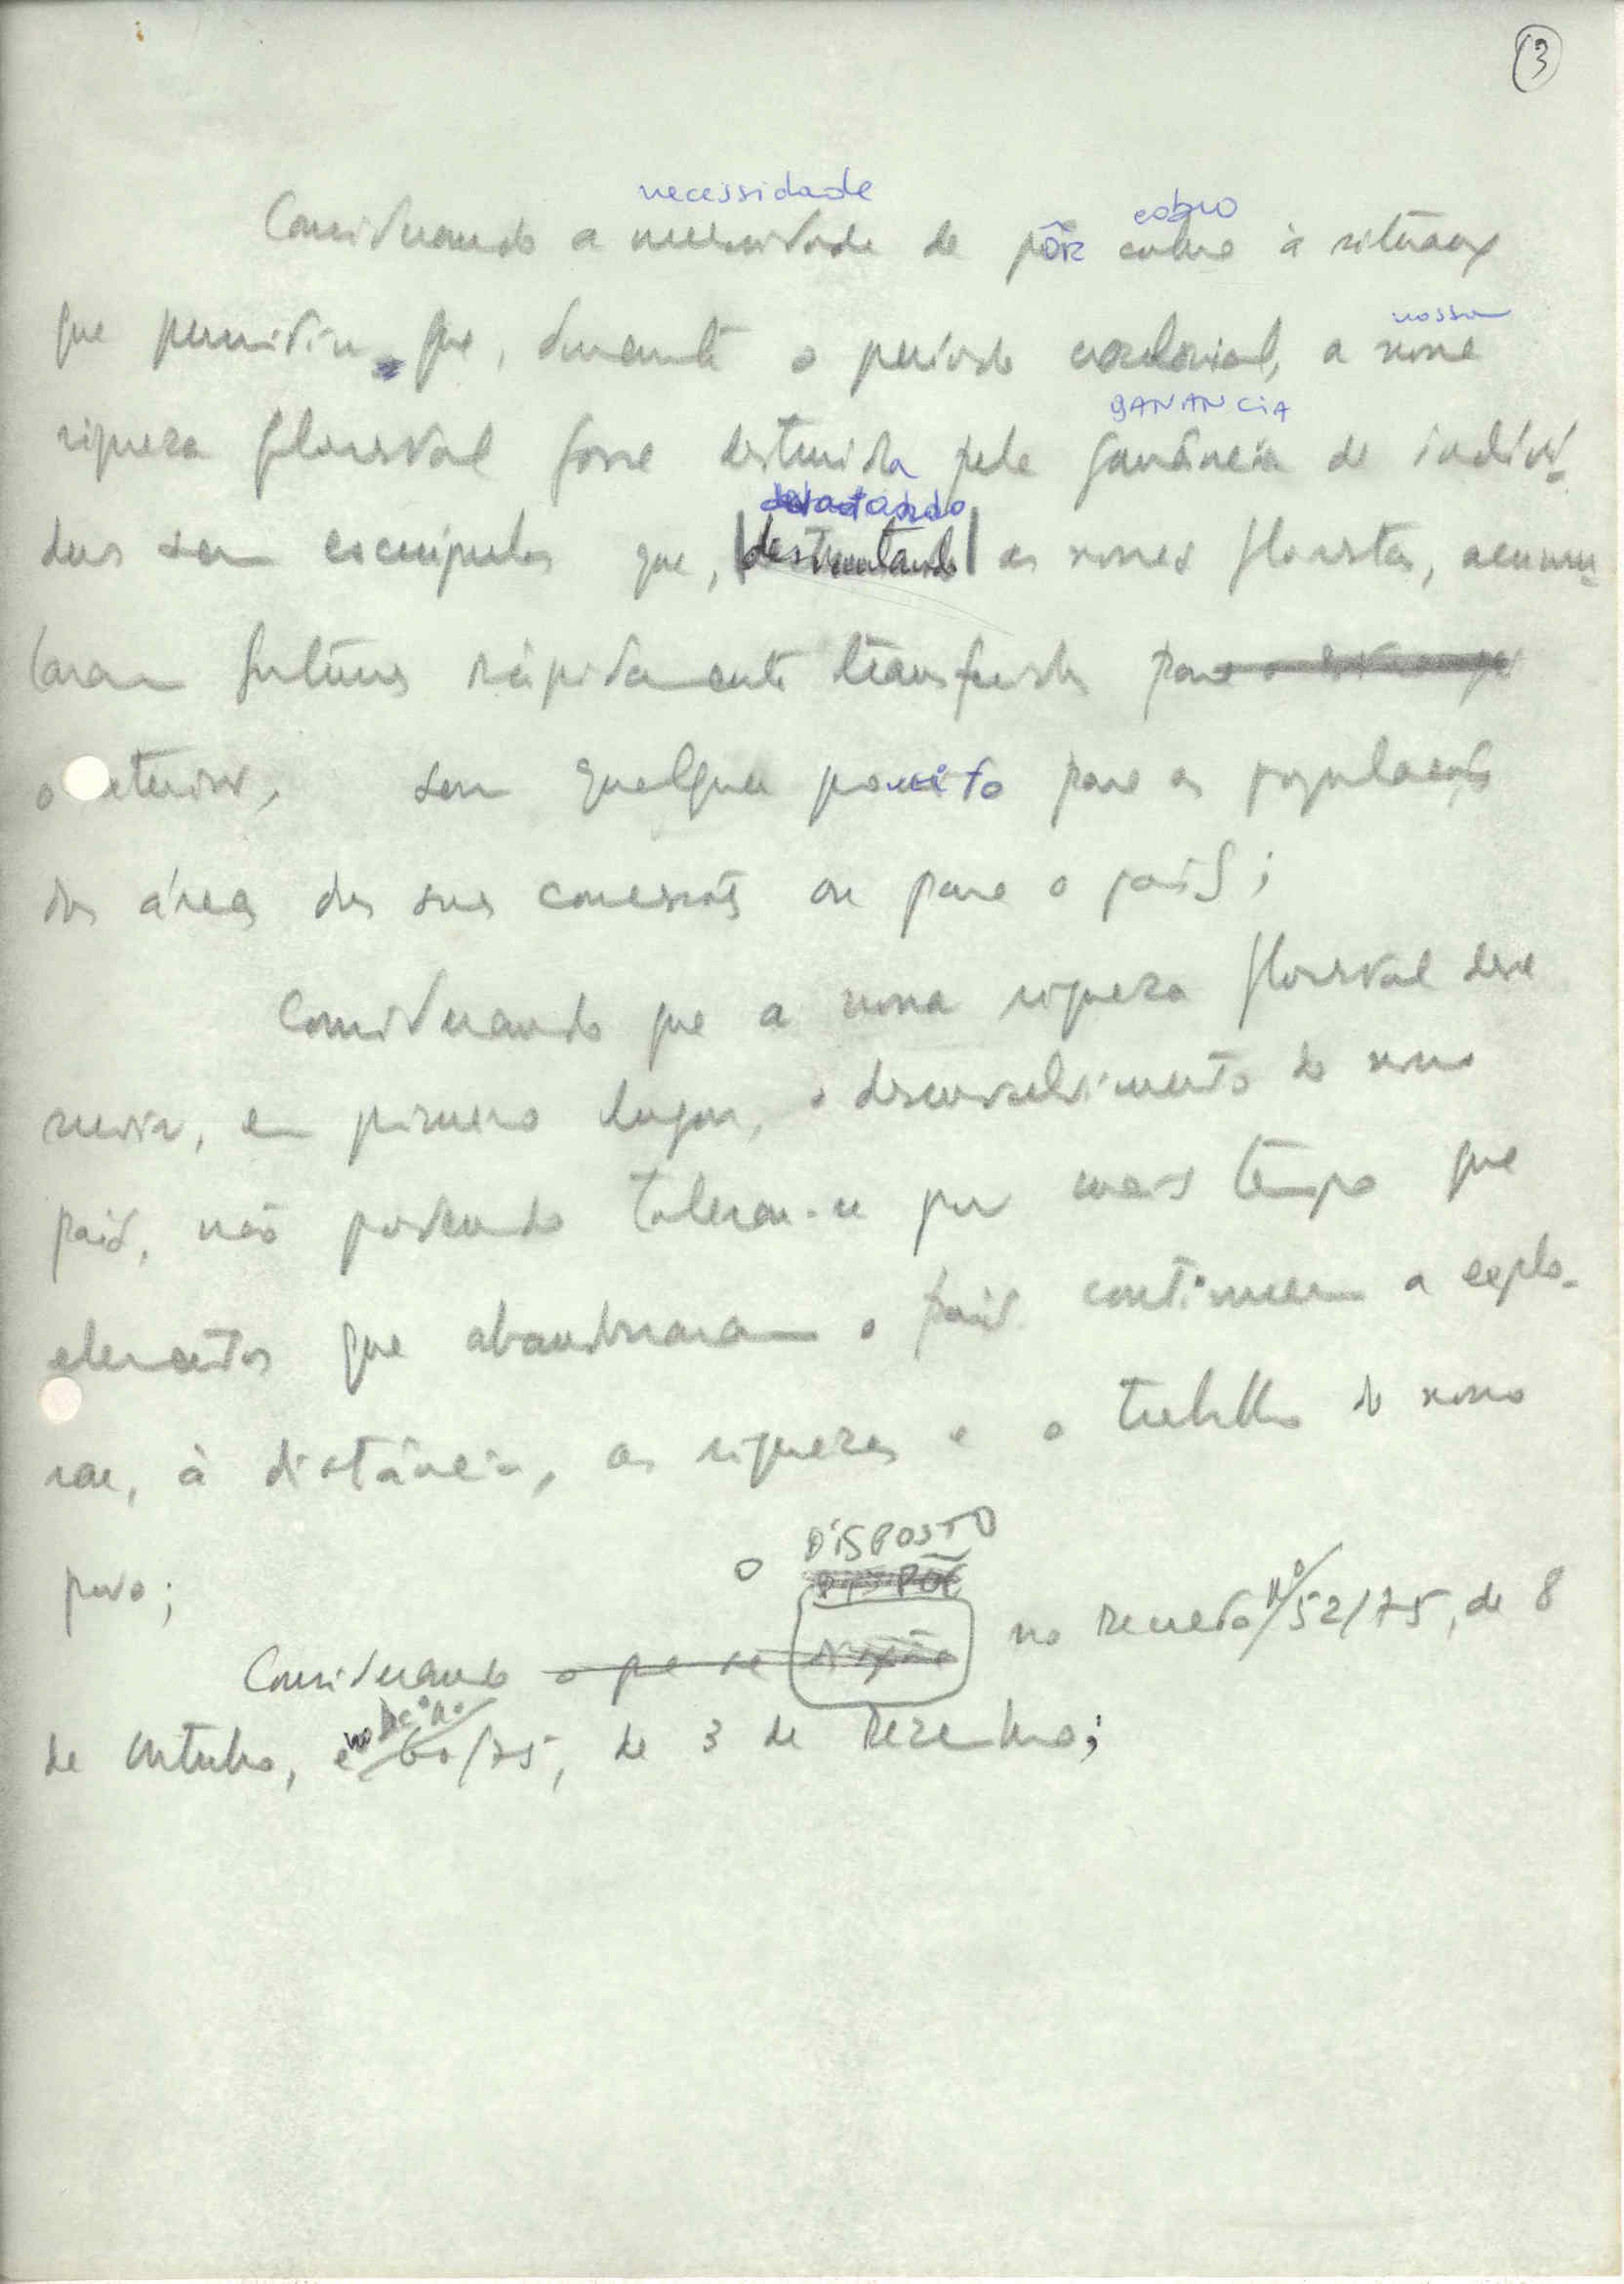 3
necessidade cobro
Considerando a necessidade de pôr cobro à situação
nossa
que permitiu que, durante o período colonial, a nossa
GANANCIA
riqueza florestal fosse destruida pela ganância de indiví-
devastando
duos sem escrúpulos que, desfrutando as nossas florestas, acumu-
laram fortunas rápidamente transferidas para o estrangeiro
o exterior, sem qualquer proveito para as populações
das áreas das suas concessões ou para o país;
Considerando que a nossa riqueza florestal deve
servir, em primeiro lugar, o desenvolvimento do nosso
país, não podendo tolerar-se por mais tempo que
elementos que abandonaram o país continuem a explo-
rar, à distância, as riquezas e o trabalho do nosso
povo;
O DISPOSTO
DISPÕE
Considerando o que se dispõe no Decreto nº 52/75, de 8
no Dec. nº
de Outubro, e 60/75, de 3 de Dezembro;